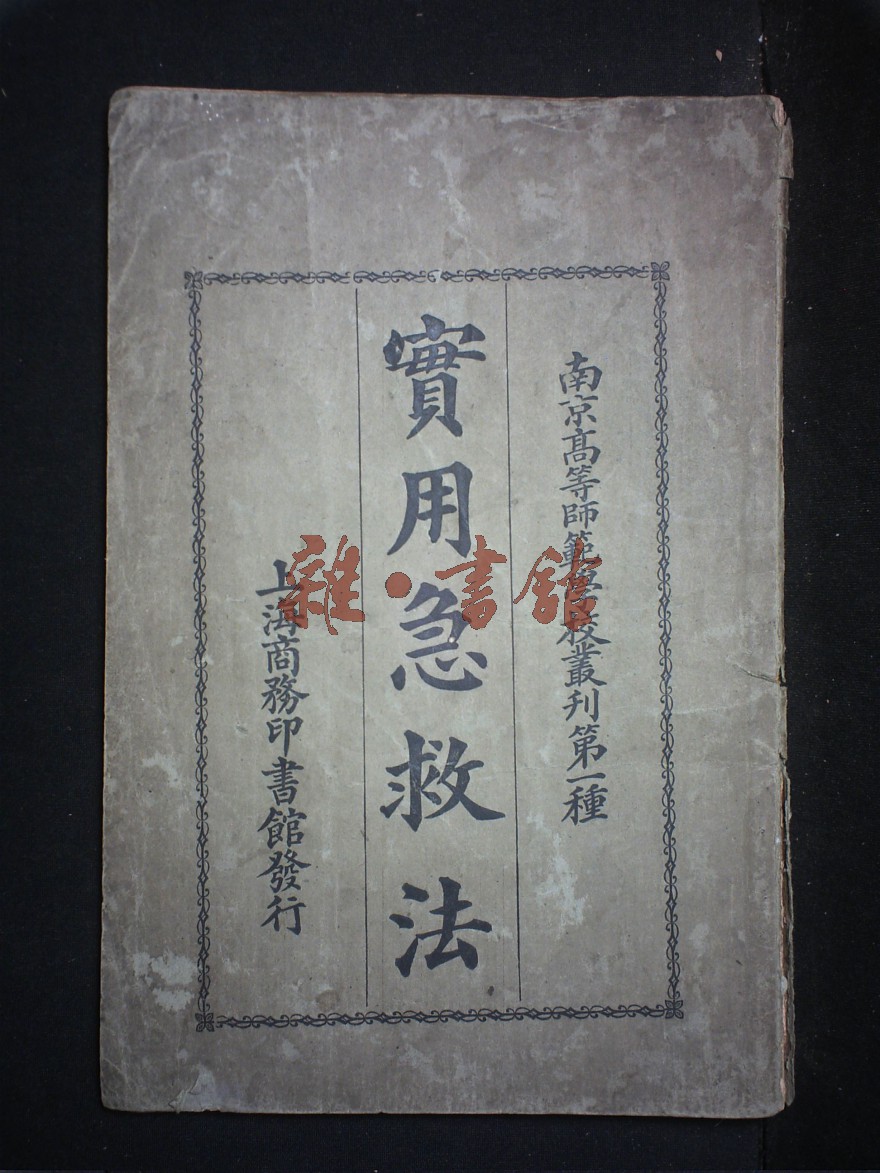 南京高等師範學校叢刊第一種
實用急救法
上海商務印書館發行
雜·書館